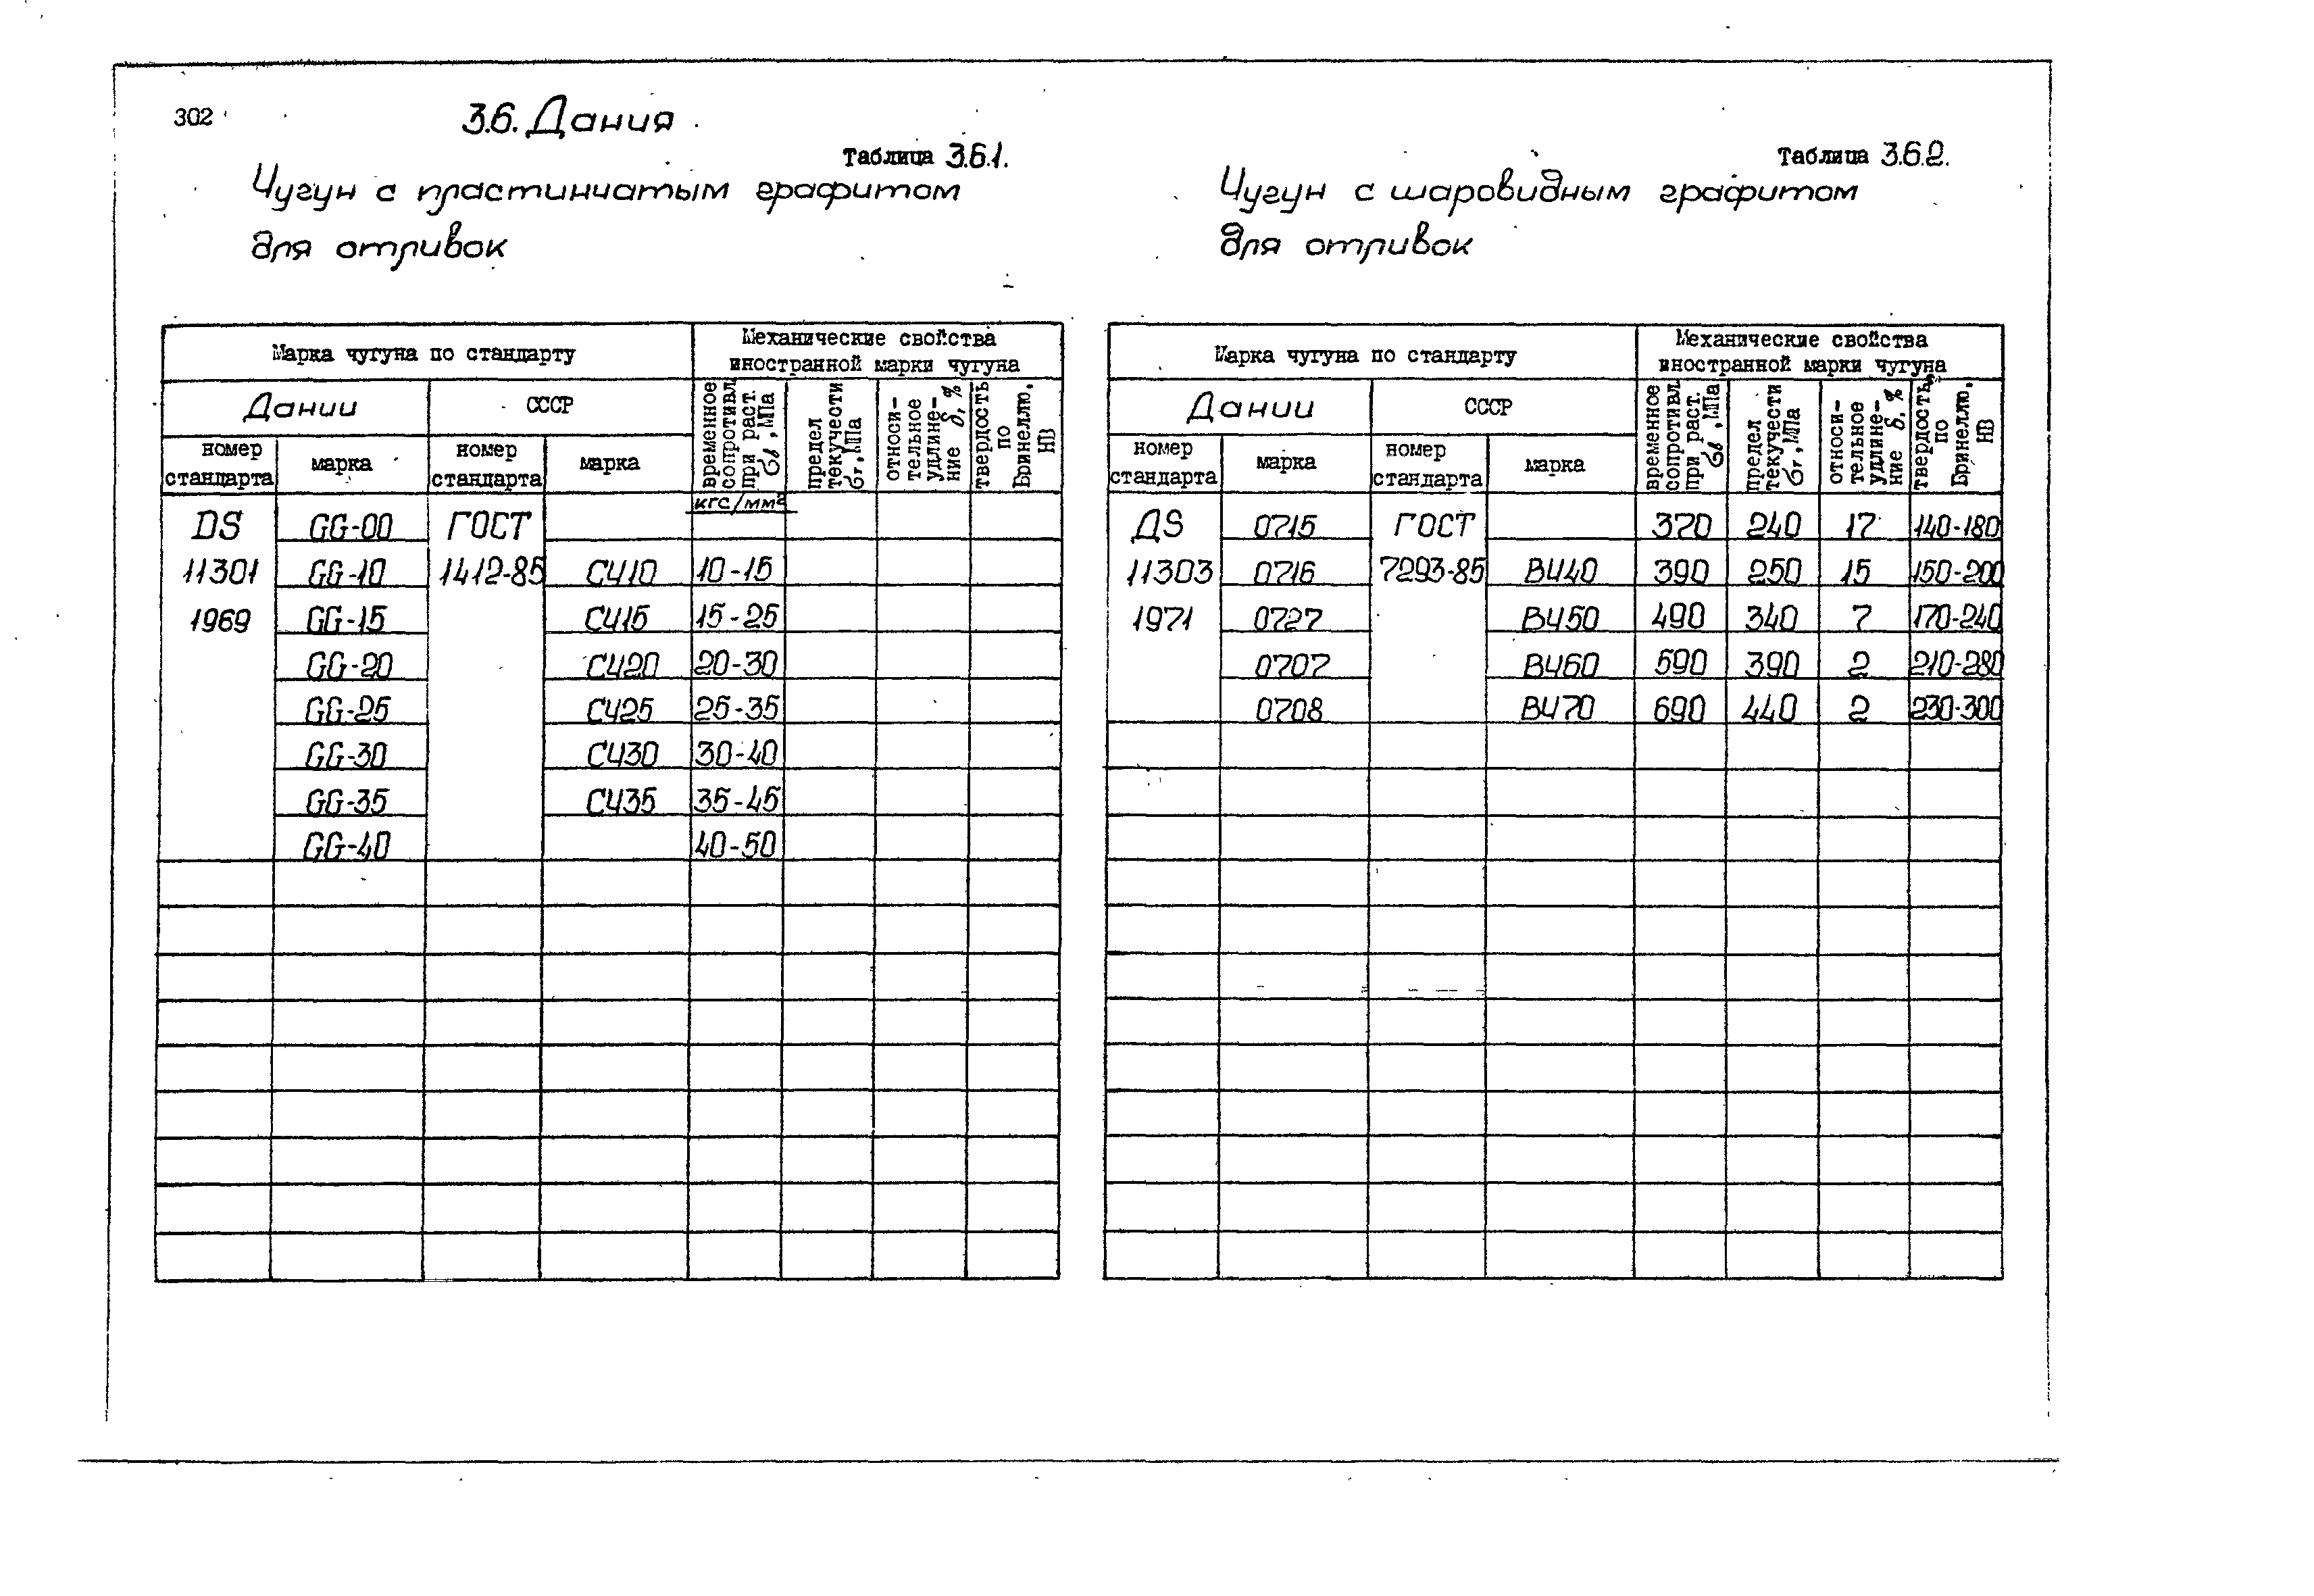 302
3.6. Дания
Таблица 3.6.1.
Чугун с пластинчатым графитом
для отливок
Марка чугуна по стандарту
Механические свойства
иностранной марки чугуна
Дании
СССР
временное
сопротивл.
при раст.
σв, МПа
предел
текучести
σт, МПа
относи-
тельное
удлине-
ние δ, %
твердость
по
Бринеллю.
НВ
номер
стандарта
марка
номер
стандарта
марка
кгс/мм²
DS GG-00 ГОСТ
11301 GG-10 1412-85 СЧ10 10-15
1969 GG-15 СЧ15 15-25
GG-20 СЧ20 20-30
GG-25 СЧ25 25-35
GG-30 СЧ30 30-40
GG-35 СЧ35 35-45
GG-40 40-50
Таблица 3.6.2.
Чугун с шаровидным графитом
для отливок
Марка чугуна по стандарту
Механические свойства
иностранной марки чугуна
Дании
СССР
временное
сопротивл.
при раст.
σв, МПа
предел
текучести
σт, МПа
относи-
тельное
удлине-
ние δ, %
твердость
по
Бринеллю.
НВ
номер
стандарта
марка
номер
стандарта
марка
ДS 0715 ГОСТ 370 240 17 140-180
11303 0716 7293-85 ВЧ40 390 250 15 150-200
1971 0727 ВЧ50 490 340 7 170-240
0707 ВЧ60 590 390 2 210-280
0708 ВЧ70 690 440 2 230-300